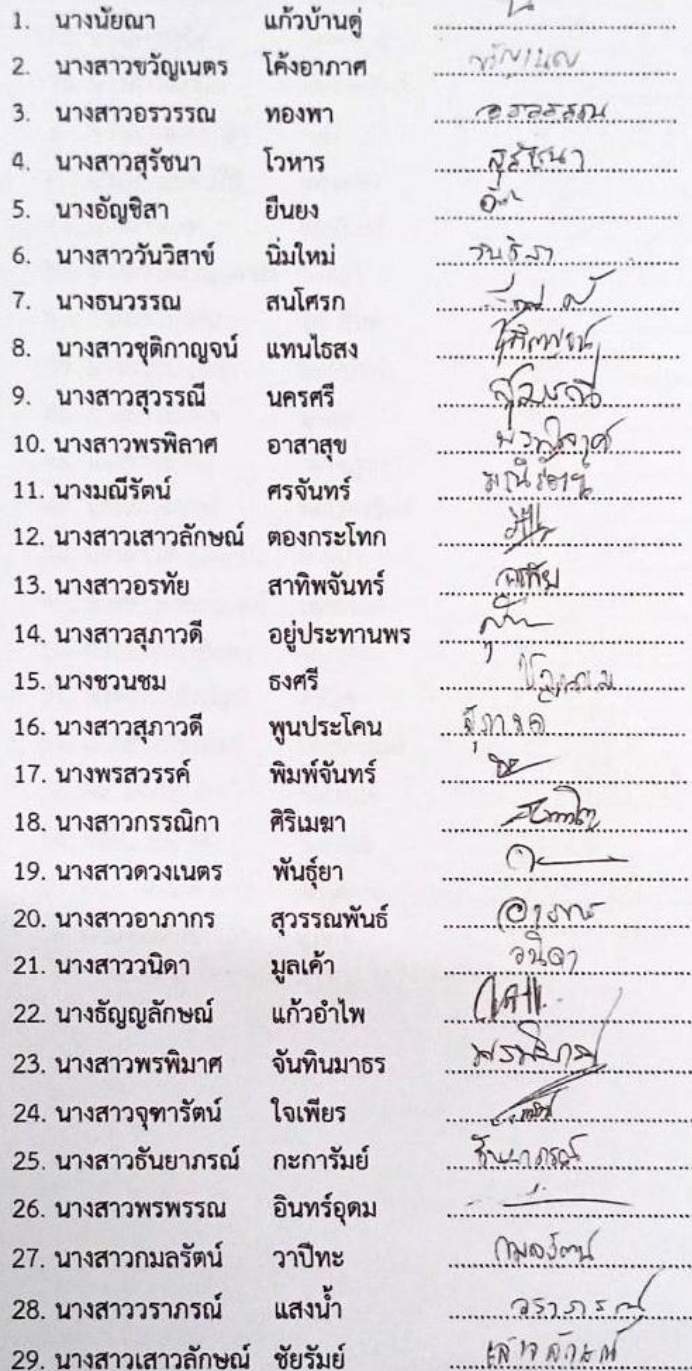 1. นางนัยณา แก้วบ้านดู่
2. นางสาวขวัญเนตร โค้งอาภาศ ขวัญเนตร
3. นางสาวอรวรรณ ทองพา อรวรรณ
4. นางสาวสุรัชนา โวหาร สุรัชนา
5. นางอัญชิสา ยืนยง
6. นางสาววันวิสาข์ นิ่มใหม่
7. นางธนวรรณ สนโศรก
8. นางสาวชุติกาญจน์ แทนไธสง ชุติกาญจน์
9. นางสาวสุวรรณี นครศรี สุวรรณี
10. นางสาวพรพิลาศ อาสาสุข พรพิลาศ
11. นางมณีรัตน์ ศรจันทร์ มณีรัตน์
12. นางสาวเสาวลักษณ์ ตองกระโทก
13. นางสาวอรทัย สาทิพจันทร์ อรทัย
14. นางสาวสุภาวดี อยู่ประทานพร
15. นางชวนชม ธงศรี
16. นางสาวสุภาวดี พูนประโคน
17. นางพรสวรรค์ พิมพ์จันทร์
18. นางสาวกรรณิกา ศิริเมฆา
19. นางสาวดวงเนตร พันธุ์ยา
20. นางสาวอาภากร สุวรรณพันธ์ อาภากร
21. นางสาววนิดา มูลเค้า วนิดา
22. นางธัญญลักษณ์ แก้วอำไพ
23. นางสาวพรพิมาศ จันทินมาธร พรพิมาศ
24. นางสาวจุฑารัตน์ ใจเพียร
25. นางสาวธันยาภรณ์ กะการัมย์ ธันยาภรณ์
26. นางสาวพรพรรณ อินทร์อุดม
27. นางสาวกมลรัตน์ วาปีทะ กมลรัตน์
28. นางสาววราภรณ์ แสงน้ำ วราภรณ์
29. นางสาวเสาวลักษณ์ ชัยรัมย์ เสาวลักษณ์